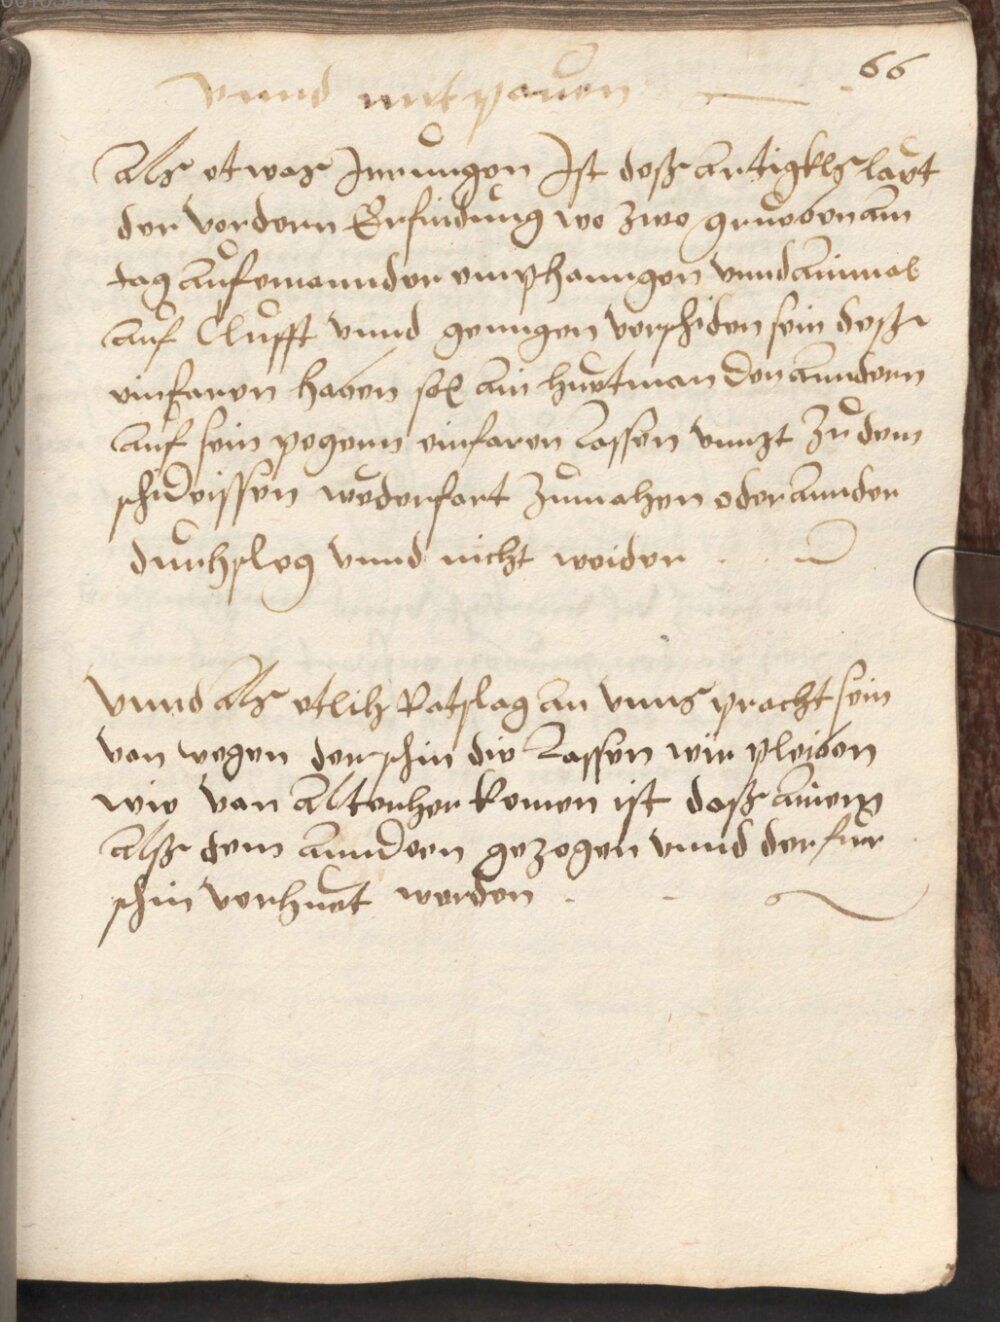 66
vnnd mit pauen
Als etwas Irrungen Ist deß artigkls laut
der vordern Erfindung wo zwo grueben am
tag auf einannder emphanngen vnnd ainmal
auf Clufft vnnd genngen verschiden sein deß
einfaren haben sol ain huetman den anndern
auf sein pegern einfaren lassen vnnzt zu dem
schideissen wederfart zumahen oder annder
durchsleg vnnd nicht weider
Vnnd als etlich Ratslag an vnns pracht sein
von wegen der schin die lassen wir pleiben
wie von alter her komen ist daß ainem
alß dem anndern gezogen vnnd der fur
schin verhuet werden